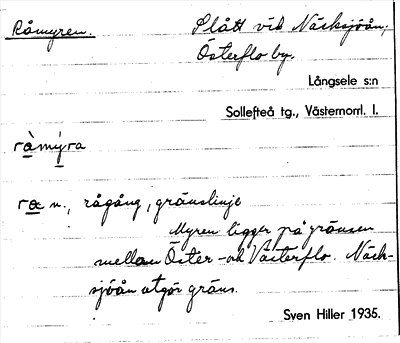 Råmyren. Slått vid Näcksjöån,
Österflo by.
Långsele s:n
Sollefteå tg., Västernorrl. l.
ràmy̍ra
ra n., rågång, gränslinje
Myren ligger på gränsen
mellan Öster- och Västerflo. Näck-
sjöån utgör gräns.
Sven Hiller 1935.